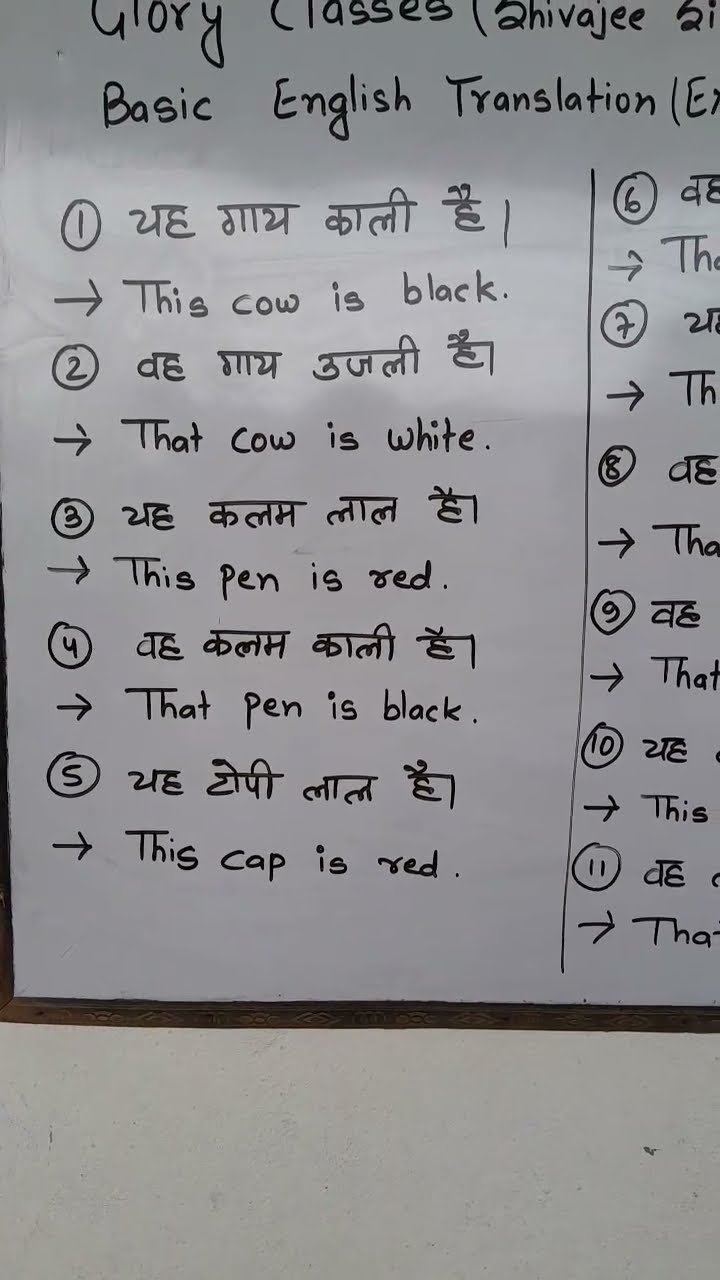 Glory Classes (Shivajee
Basic English Translation (
① यह गाय काली है।
→ This cow is black.
② वह गाय उजली है।
→ That cow is white.
③ यह कलम लाल है।
→ This pen is red.
④ वह कलम काली है।
→ That pen is black.
⑤ यह टोपी लाल है।
→ This cap is red.
⑥ वह
→
⑦ यह
→
⑧ वह
→
⑨ वह
→ That
⑩ यह
→ This
⑪ वह
→ That